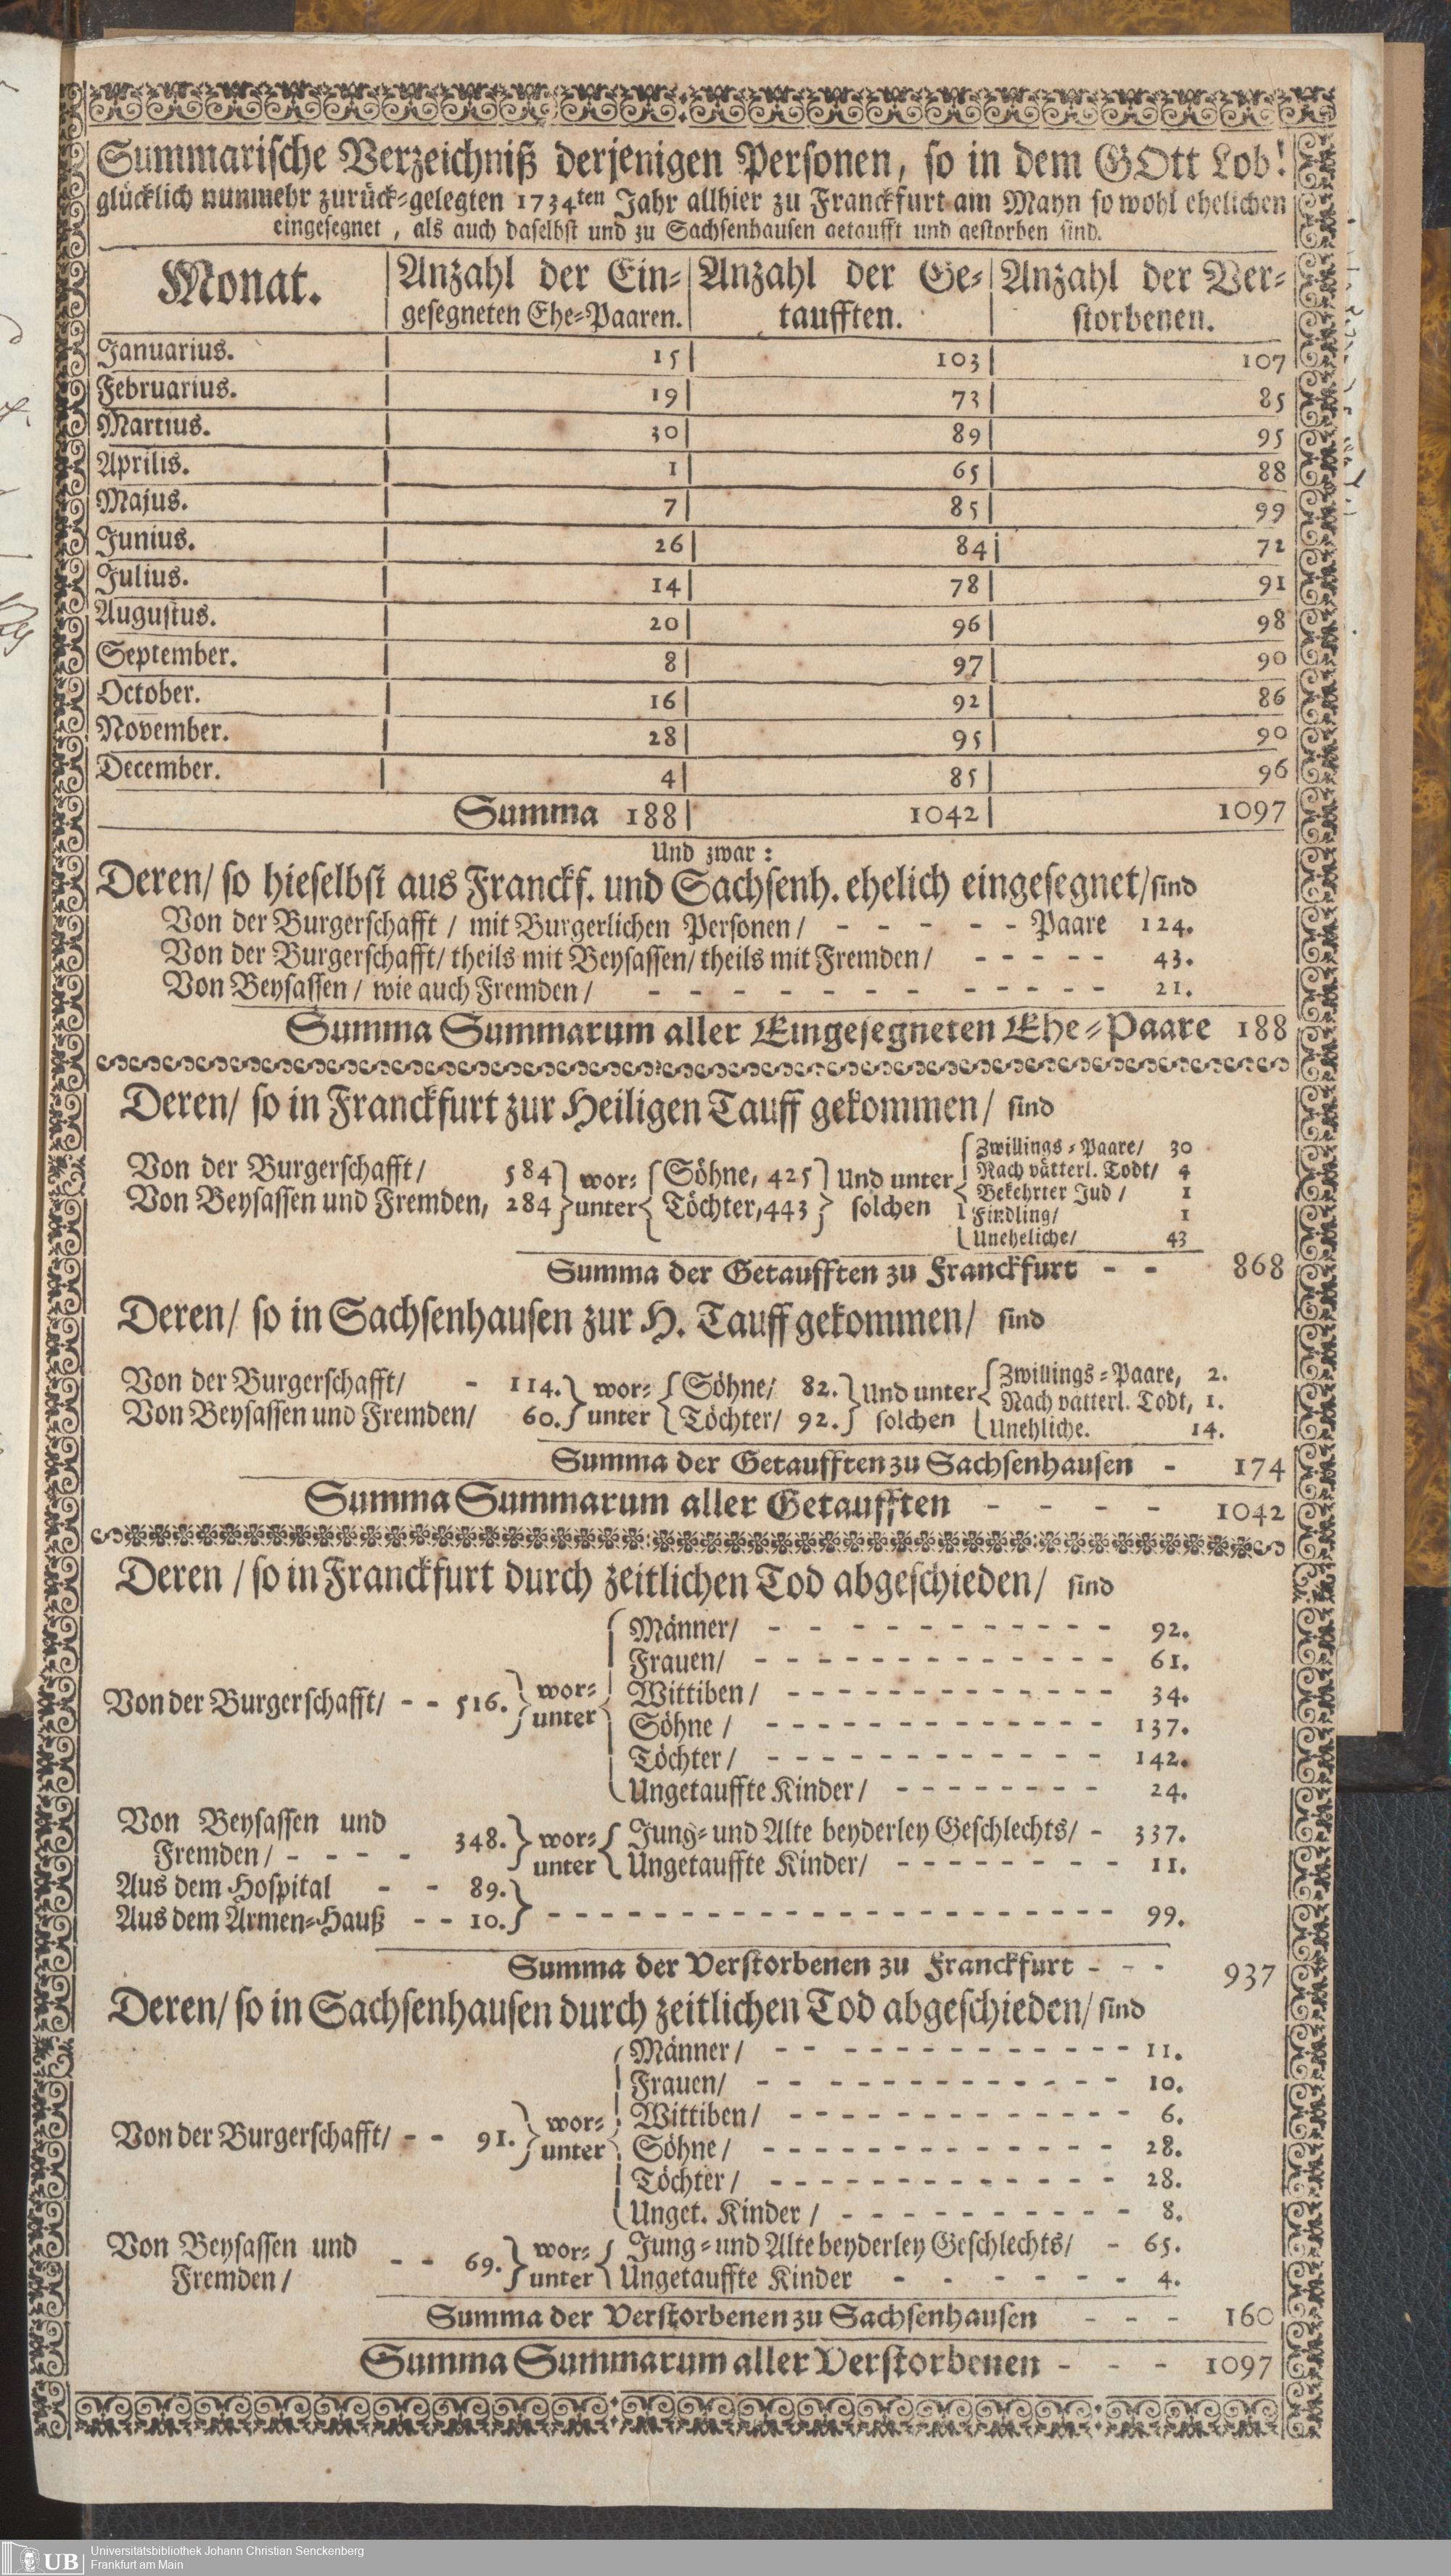 Summarische Verzeichniß derjenigen Personen, so in dem GOtt Lob!
glücklich nunmehr zurück-gelegten 1734ten Jahr allhier zu Franckfurt am Mayn so wohl ehelichen
eingesegnet, als auch daselbst und zu Sachsenhausen getaufft und gestorben sind.
Monat. | Anzahl der Ein- | Anzahl der Ge- | Anzahl der Ver-
gesegneten Ehe-Paaren. | taufften. | storbenen.
Januarius. | 15 | 103 | 107
Februarius. | 19 | 73 | 85
Martius. | 30 | 89 | 95
Aprilis. | 1 | 65 | 88
Majus. | 7 | 85 | 99
Junius. | 26 | 84 | 72
Julius. | 14 | 78 | 91
Augustus. | 20 | 96 | 98
September. | 8 | 97 | 90
October. | 16 | 92 | 86
November. | 28 | 95 | 90
December. | 4 | 85 | 96
Summa 188 | 1042 | 1097
Und zwar:
Deren/ so hieselbst aus Franckf. und Sachsenh. ehelich eingesegnet/ sind
Von der Burgerschafft / mit Burgerlichen Personen / - - - - - Paare 124.
Von der Burgerschafft/ theils mit Beysassen/ theils mit Fremden / - - - - - 43.
Von Beysassen / wie auch Fremden / - - - - - - - - - - - - 21.
Summa Summarum aller Eingesegneten Ehe-Paare 188
Deren/ so in Franckfurt zur Heiligen Tauff gekommen / sind
Von der Burgerschafft/ 584
Von Beysassen und Fremden, 284
wor-
unter
Söhne, 425
Töchter, 443
Und unter
solchen
Zwillings-Paare/ 30
Nach vätterl. Todt/ 4
Bekehrter Jud / 1
Findling/ 1
Uneheliche/ 43
Summa der Getaufften zu Franckfurt - - 868
Deren/ so in Sachsenhausen zur H. Tauff gekommen / sind
Von der Burgerschafft/ - 114.
Von Beysassen und Fremden/ 60.
wor-
unter
Söhne/ 82.
Töchter/ 92.
Und unter
solchen
Zwillings-Paare, 2.
Nach vatterl. Todt, 1.
Unehliche. 14.
Summa der Getaufften zu Sachsenhausen - 174
Summa Summarum aller Getaufften - - - - 1042
Deren / so in Franckfurt durch zeitlichen Tod abgeschieden/ sind
Von der Burgerschafft/ - - 516.
wor-
unter
Männer/ - - - - - - - - - - - 92.
Frauen/ - - - - - - - - - - - - 61.
Wittiben / - - - - - - - - - - - 34.
Söhne / - - - - - - - - - - - - 137.
Töchter / - - - - - - - - - - - - 142.
Ungetauffte Kinder / - - - - - - - - 24.
Von Beysassen und
Fremden / - - - - 348.
wor-
unter
Jung- und Alte beyderley Geschlechts/ - 337.
Ungetauffte Kinder/ - - - - - - - - 11.
Aus dem Hospital - - 89.
Aus dem Armen-Hauß - - 10.
- - - - - - - - - - - - - - - - - - - - 99.
Summa der Verstorbenen zu Franckfurt - - - 937
Deren/ so in Sachsenhausen durch zeitlichen Tod abgeschieden/ sind
Von der Burgerschafft/ - - 91.
wor-
unter
Männer / - - - - - - - - - - - - 11.
Frauen/ - - - - - - - - - - - - 10.
Wittiben / - - - - - - - - - - - - 6.
Söhne / - - - - - - - - - - - - 28.
Töchter / - - - - - - - - - - - - 28.
Unget. Kinder / - - - - - - - - - - 8.
Von Beysassen und
Fremden / - - 69.
wor-
unter
Jung- und Alte beyderley Geschlechts/ - 65.
Ungetauffte Kinder - - - - - - 4.
Summa der Verstorbenen zu Sachsenhausen - - - 160
Summa Summarum aller Verstorbenen - - - 1097
UB
Universitätsbibliothek Johann Christian Senckenberg
Frankfurt am Main